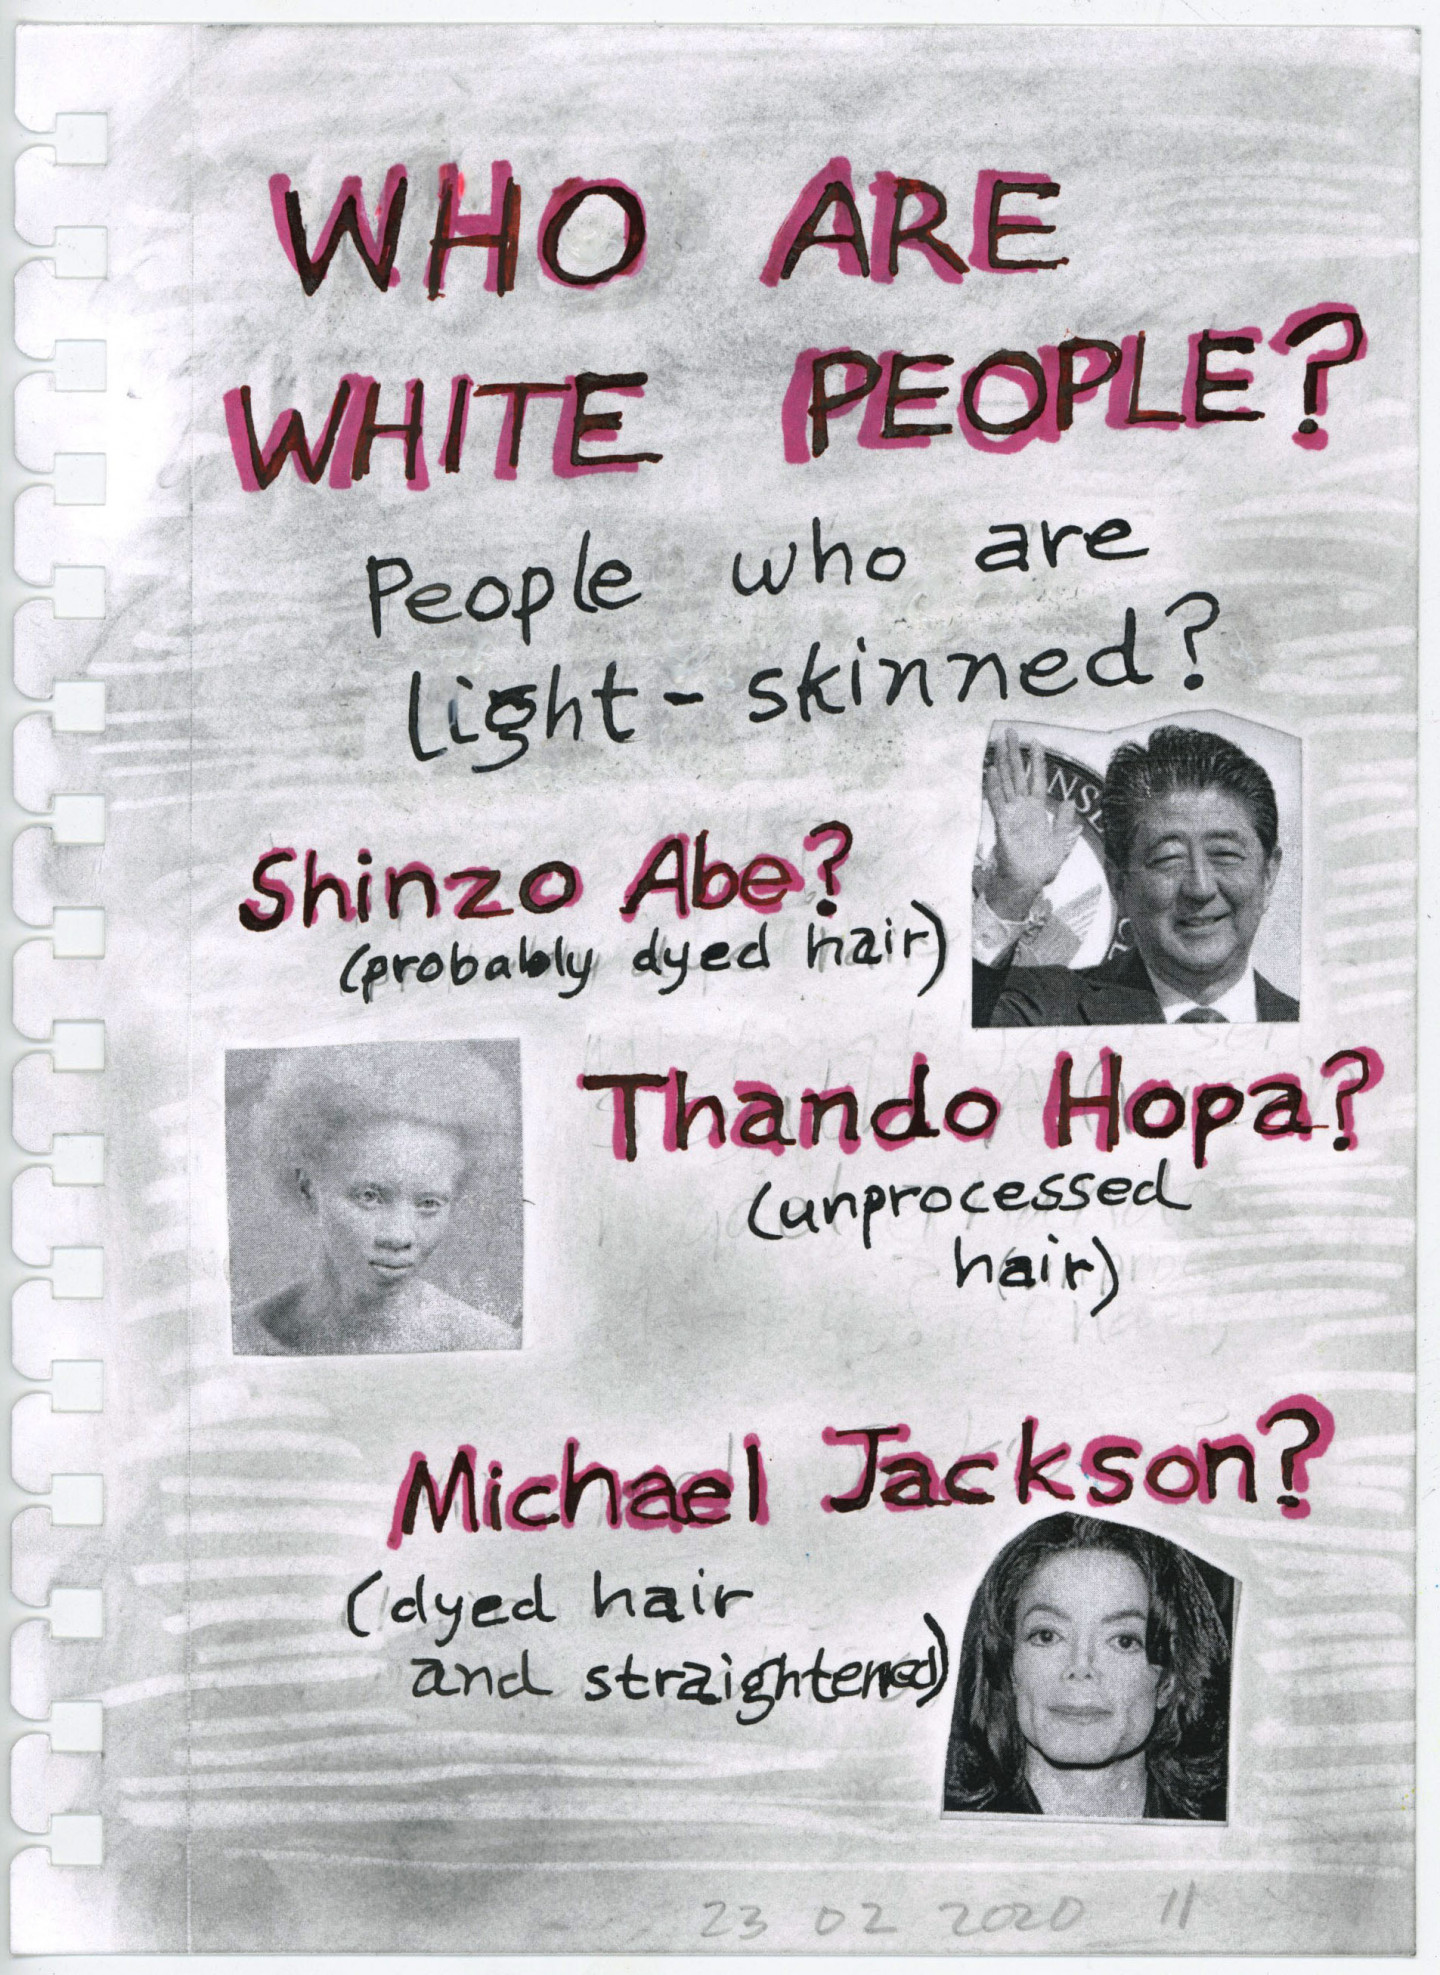 WHO ARE
WHITE PEOPLE?
People who are
light-skinned?
NSE
Shinzo Abe?
(probably dyed hair)
Thando Hopa?
(unprocessed
hair)
Michael Jackson?
(dyed hair
and straightened)
23 02 2020 11